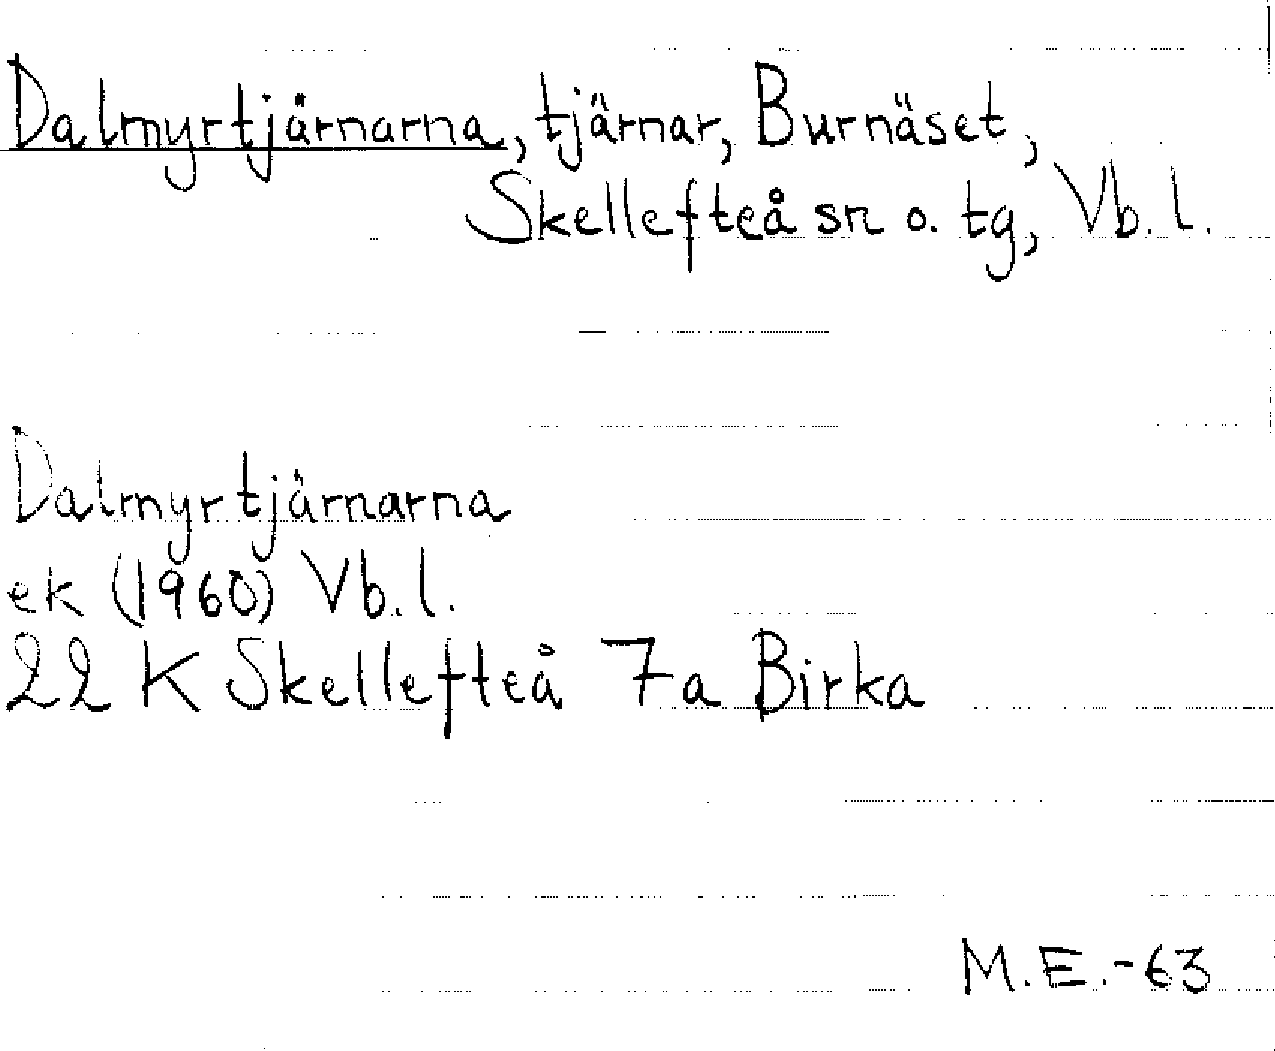 Dalmyrtjärnarna, tjärnar, Burnäset,
Skellefteå sn o. tg, Vb. l.
Dalmyrtjärnarna
ek (1960) Vb. l.
22 K Skellefteå 7a Birka
M.E.-63